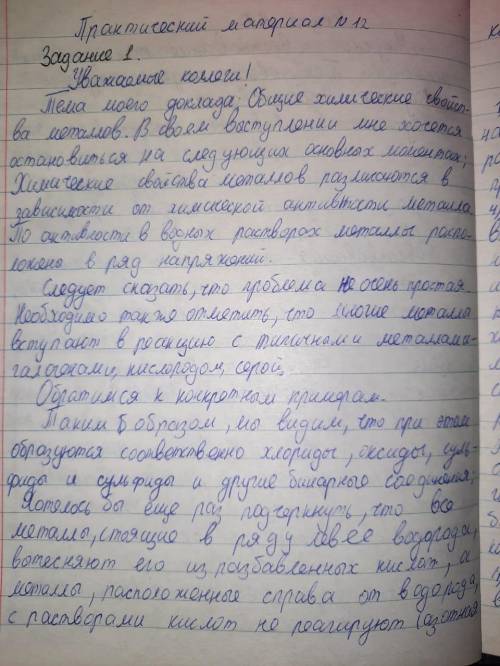 Практический материал №12
Задание 1.
Уважаемые коллеги!
Тема моего доклада: Общие химические свойст-
ва металлов. В своем выступлении мне хочется
остановиться на следующих основных моментах;
Химические свойства металлов различаются в
зависимости от химической активности металла
По активности в водных растворах металлы распо-
ложены в ряд напряжений.
Следует сказать, что проблема не очень простая.
Необходимо также отметить, что многие металлы
вступают в реакцию с типичными металлами-
галогодами, кислородом, серой,
Обратимся к конкретным примерам.
Таким образом, мы видим, что при этом
образуются соответственно хлориды, оксиды, суль-
фиды и сульфиды и другие бинарные соединения;
Хотелось бы еще раз подчеркнуть, что все
металлы, стоящие в ряду левее водорода,
вытесняют его из разбавленных кислот, а
металлы, расположенные справа от водорода,
с растворами кислот не реагируют (азотная